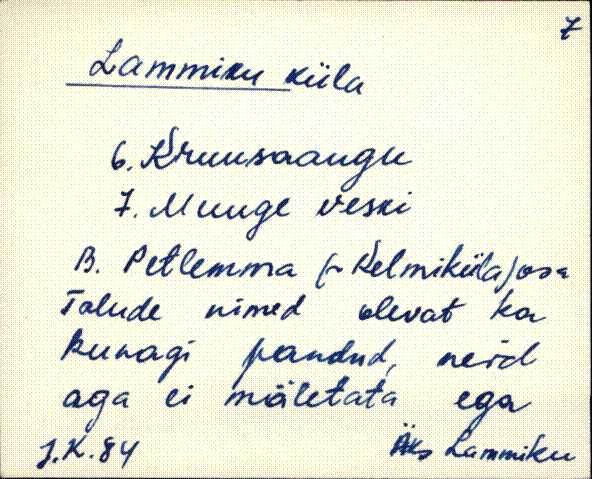 7
Lammiku küla
6. Kruusaaugu
7. Muuge veski
B. Petlemma (~ Kelmiküla) osa
Talude nimed olevat ka
kunagi pandud, neid
aga ei mäletata ega
J.K. 84 Äks Lammiku